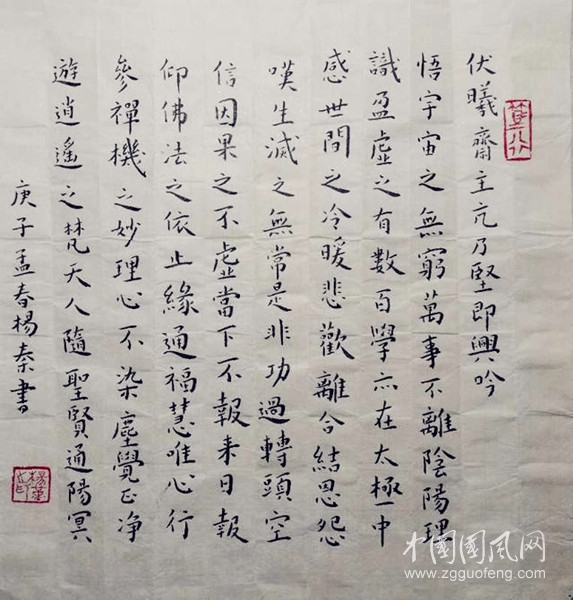 伏曦齋主亢乃堅即興吟
悟宇宙之無窮萬事不離陰陽理
識盈虛之有數百學亦在太極中
感世間之冷暖悲歡離合結恩怨
嘆生滅之無常是非功過轉頭空
信因果之不虛當下不報來日報
仰佛法之依止緣通福慧唯心行
參禪機之妙理心不染塵覺正净
遊逍遙之梵天人隨聖賢通陽冥
庚子孟春楊秦書
中國國风网
www.zgguofeng.com